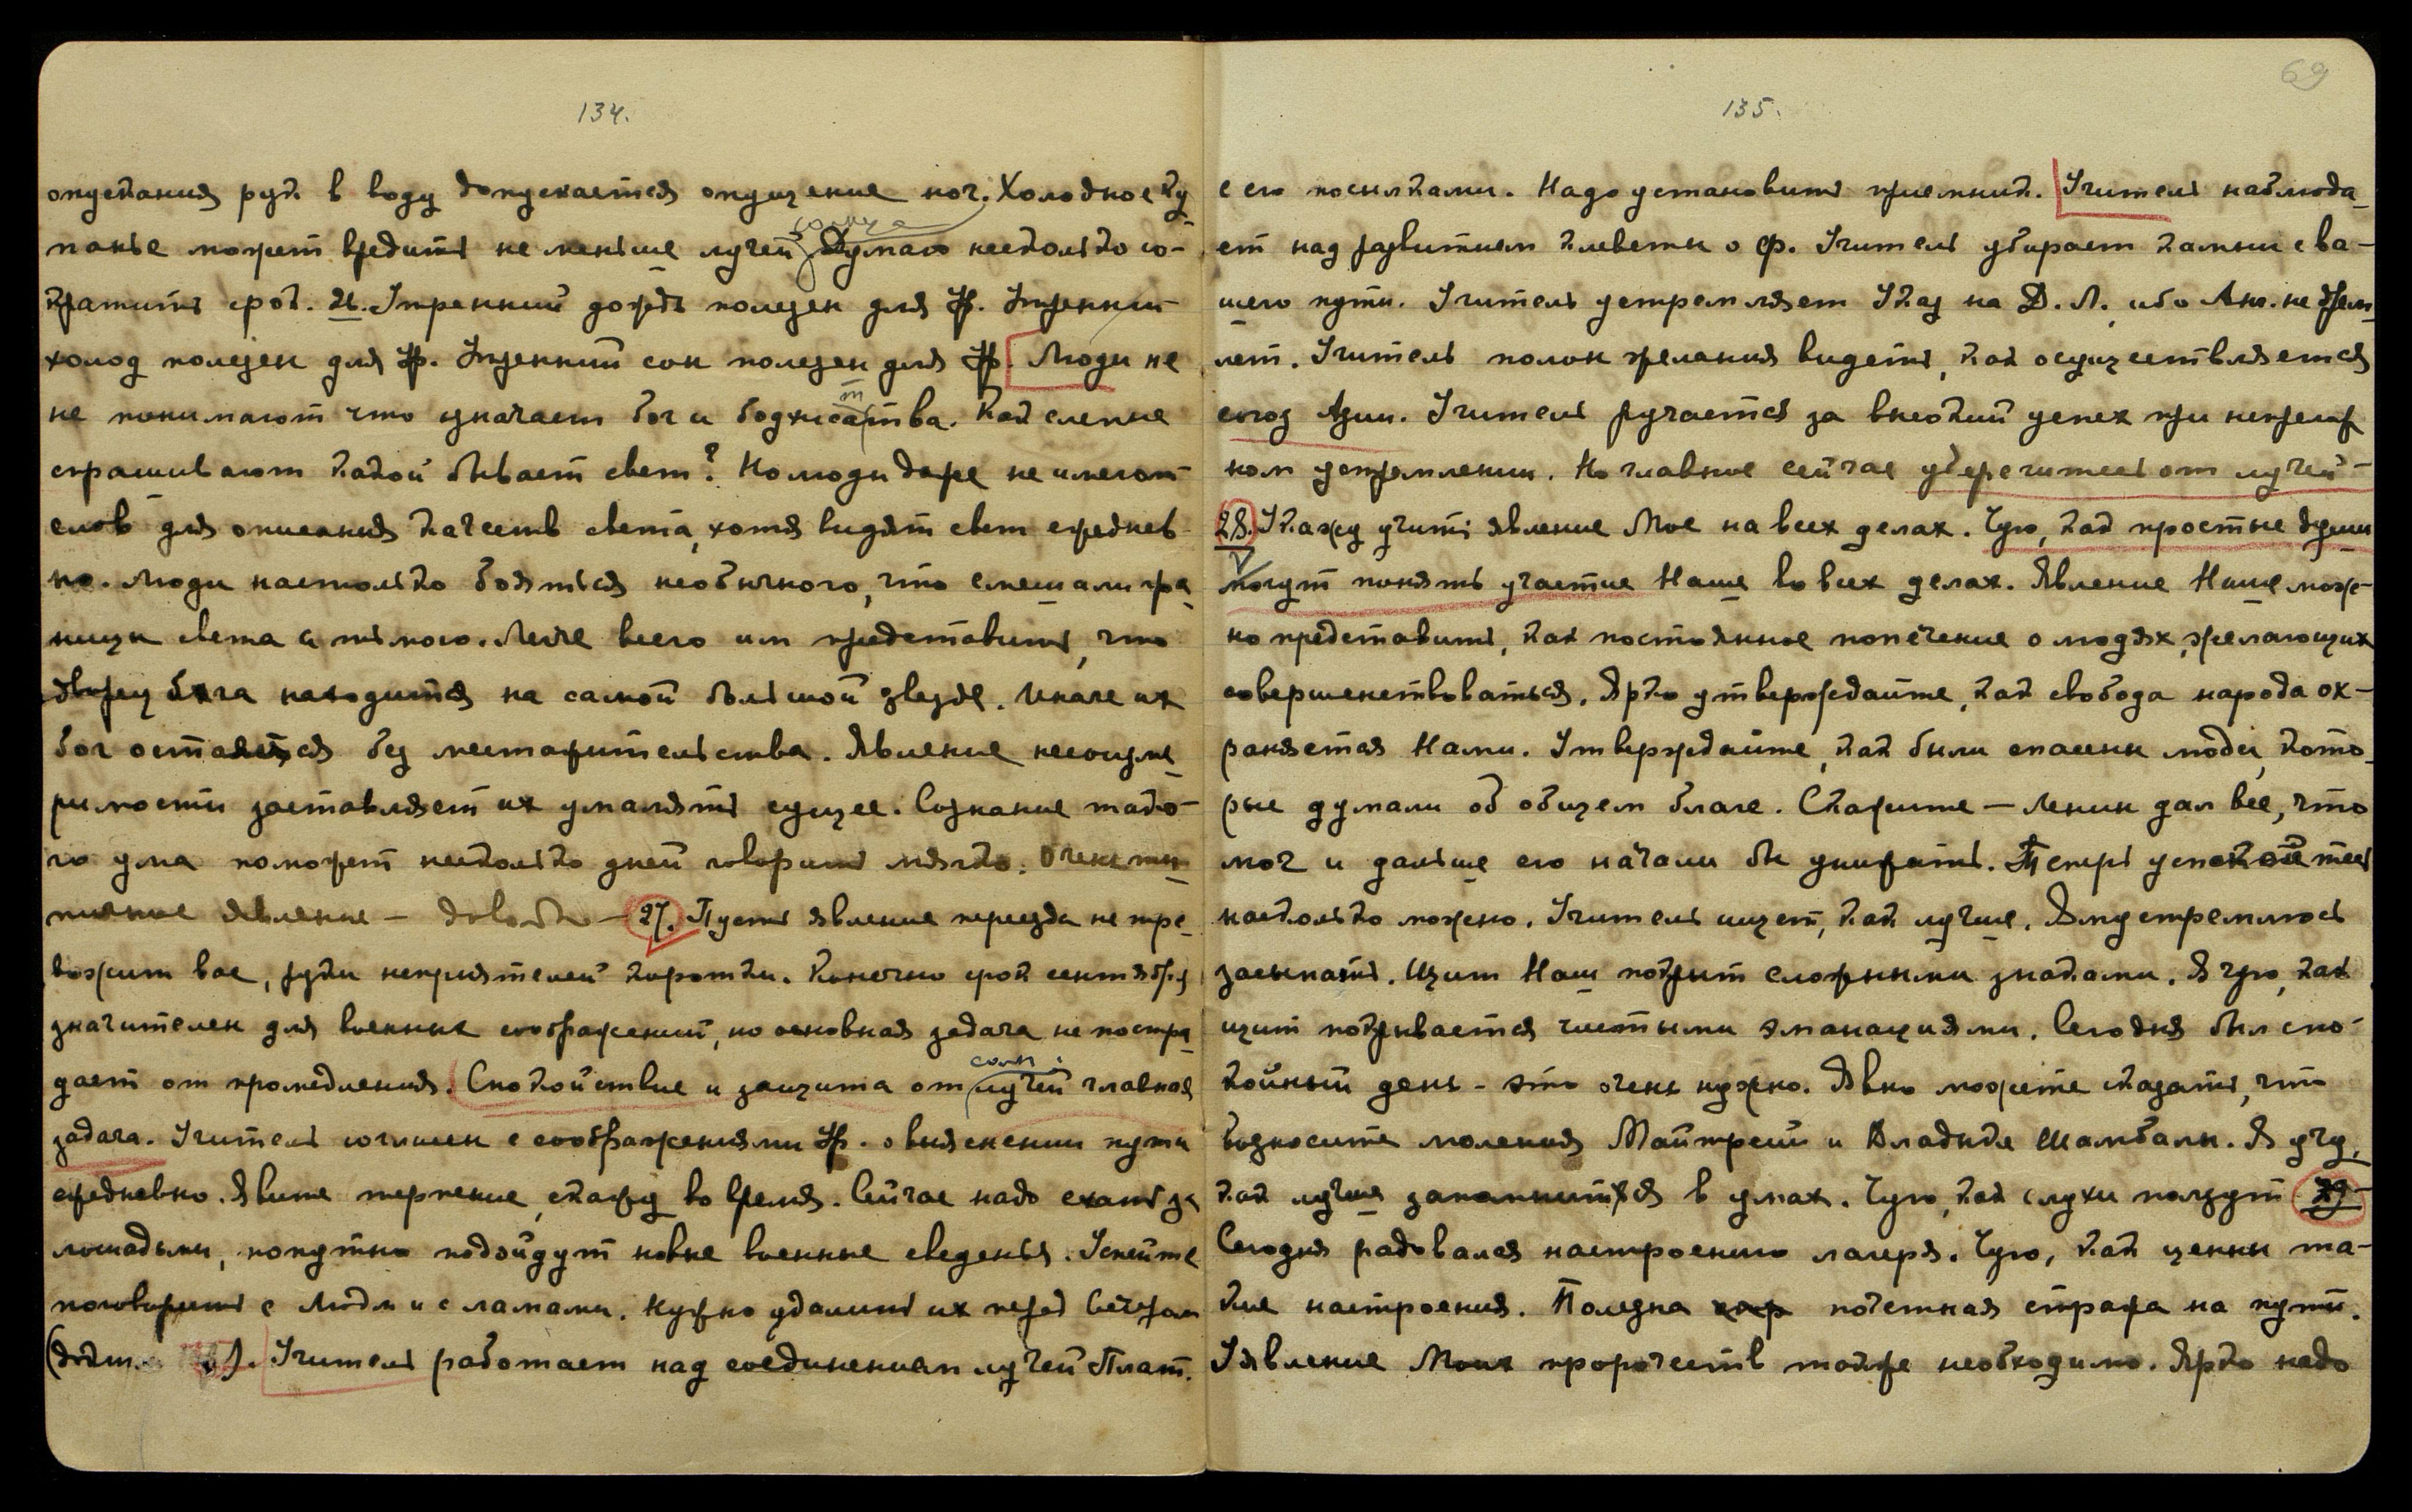 134.
опускания рук в воду допускается опущение ног. Холодное ку-
солнца
панье может вредить не меньше лучей Думаю несколько со-
кратить срок. 26. Утренний дождь полезен для Ур. Утренний
холод полезен для Ур. Утренний сон полезен для Ур. Люди не
не понимают что означает бог и бодхисатства. Как слепые
спрашивают какой бывает свет? Но люди даже не имеют
слов для описания качеств света, хотя видят свет ежеднев-
но. Люди настолько боятся необычного, что смешали гра-
ницы света и тьмы. Легче всего им представить, что
дворец бога находится на самой большой звезде. Иначе их
бог останется без местожительства. Явление несоизме-
римости заставляет их умалять сущее. Сознание тако-
го ума поможет несколько дней говорить мягко. Очень ти-
пичное явление – довольно – 27. Пусть явление переезда не тре-
вожит вас, руки неприятелей коротки. Конечно срок сентября
значителен для военных соображений, но основная задача не постра-
солн.
дает от промедления. Спокойствие и защита от лучей главная
задача. Учитель согласен с соображениями Ур. о выяснении пути
ежедневно. Явите терпение, скажу во время. Сейчас надо ехать за
лошадьми, попутно подойдут новые военные сведенья. Успейте
поговорить с Людм и с ламами. Нужно удалить их перед вечером
Учитель работает над соединением лучей Плат.
69
135.
с его посылками. Надо установить приемник. Учитель наблюда-
ет над развитием клеветы о Ф. Учитель убирает камни с ва-
шего пути. Учитель устремляет Указ на Д. Л., ибо Анг. не дрем-
лет. Учитель полон желания видеть, как осуществляется
союз Азии. Учитель ручается за высокий успех при непреж
ном устремлении. Но главное сейчас уберегитесь от лучей –
28. Укажу учить явление Мое на всех делах. Чую, как простые души
могут понять участие Наше во всех делах. Явление Наше мож-
но представить, как постоянное попечение о людях, желающих
совершенствоваться. Ярко утверждайте, как свобода народа ох-
раняется Нами. Утверждайте, как были спасены люди, кото-
рые думали об общем благе. Скажите – Ленин дал все, что
мог и дальше его начали бы унижать. Теперь успокойтесь
насколько можно. Учитель ищет, как лучше. Яму стремлюсь
засыпать. Щит Наш покрыт сложными знаками. Я чую, как
щит покрывается чистыми эманациями. Сегодня был спо-
койный день – это очень нужно. Явно можете сказать, что
возносите моления Майтрейи и Владыке Шамбалы. Я учу,
как лучше запомнится в умах. Чую, как слухи ползут 29
Сегодня радовался настроению лагеря. Чую, как ценны та-
кие настроения. Полезна почетная стража на пути.
Уявление Моих пророчеств также необходимо. Ярко надо